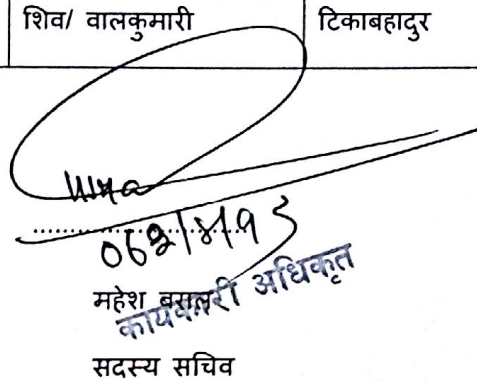 शिव/ वालकुमारी टिकाबहादुर
महेश बराल
कार्यकारी अधिकृत
सदस्य सचिव